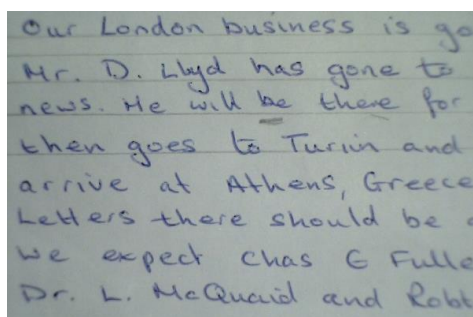 Our London business is go
Mr. D. Lloyd has gone to
news. He will be there for
then goes to Turin and
arrive at Athens, Greece
Letters there should be
we expect Chas E Fulle
Dr. L. McQuaid and Robt